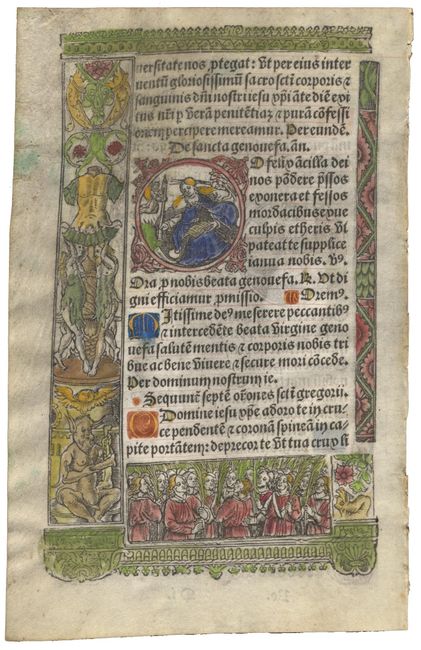 uersitate nos ꝓtegat: Ut per eius inter
uentū gloriosissimū sacrosctī corporis ⁊
sanguinis dn̄i nostri iesu xp̄i ate diē exi
tus nr̄i ꝑ verā penitētiā ⁊ purā cōfessi
onem percipere mereamur. Per eundē.
De sancta genouefa. an̄.
O felix ācilla dei
nos pōdere p̄ssos
exonera et fessos
mordacibus exue
culpis etheris vt
pateat te supplice
ianua nobis. v̄.
Ora ꝓ nobis beata genouefa. ℟. Ut di
gni efficiamur ꝓmissio. Orem⁹.
Mitissime de⁹ miserere peccantib⁹
⁊ intercedēte beata virgine geno
uefa salutē mentis ⁊ corporis nobis tri
bue ac bene viuere ⁊ secure mori cōcede.
Per dominum nostrum ie.
Sequunt̄ septē orōnes sctī gregorii.
O Domine iesu xp̄e adoro te in cru
ce pendentē ⁊ coronā spineā in ca
pite portātem: deprecor te vt tua crux li